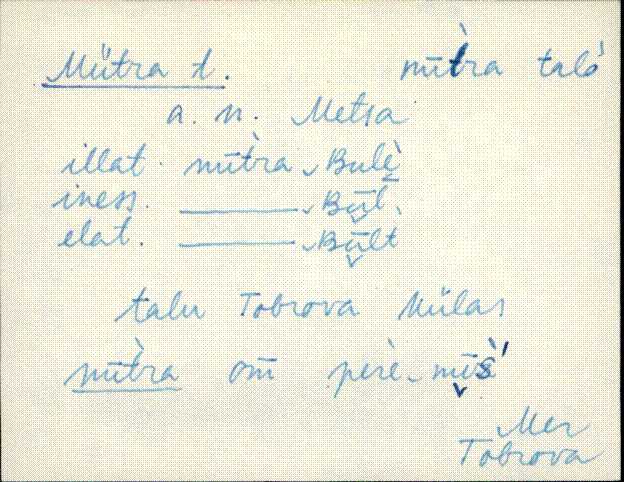 Mütra t. mǖt̀ra talò
a. n. Metsa
illat. mǖt̀ra ̮Bulè
iness. ———— ̮Būl.
elat. ———— ̮Būlt
talu Tobrova külas
mǖt̀ra om perè ̮
Mer
Tobrova